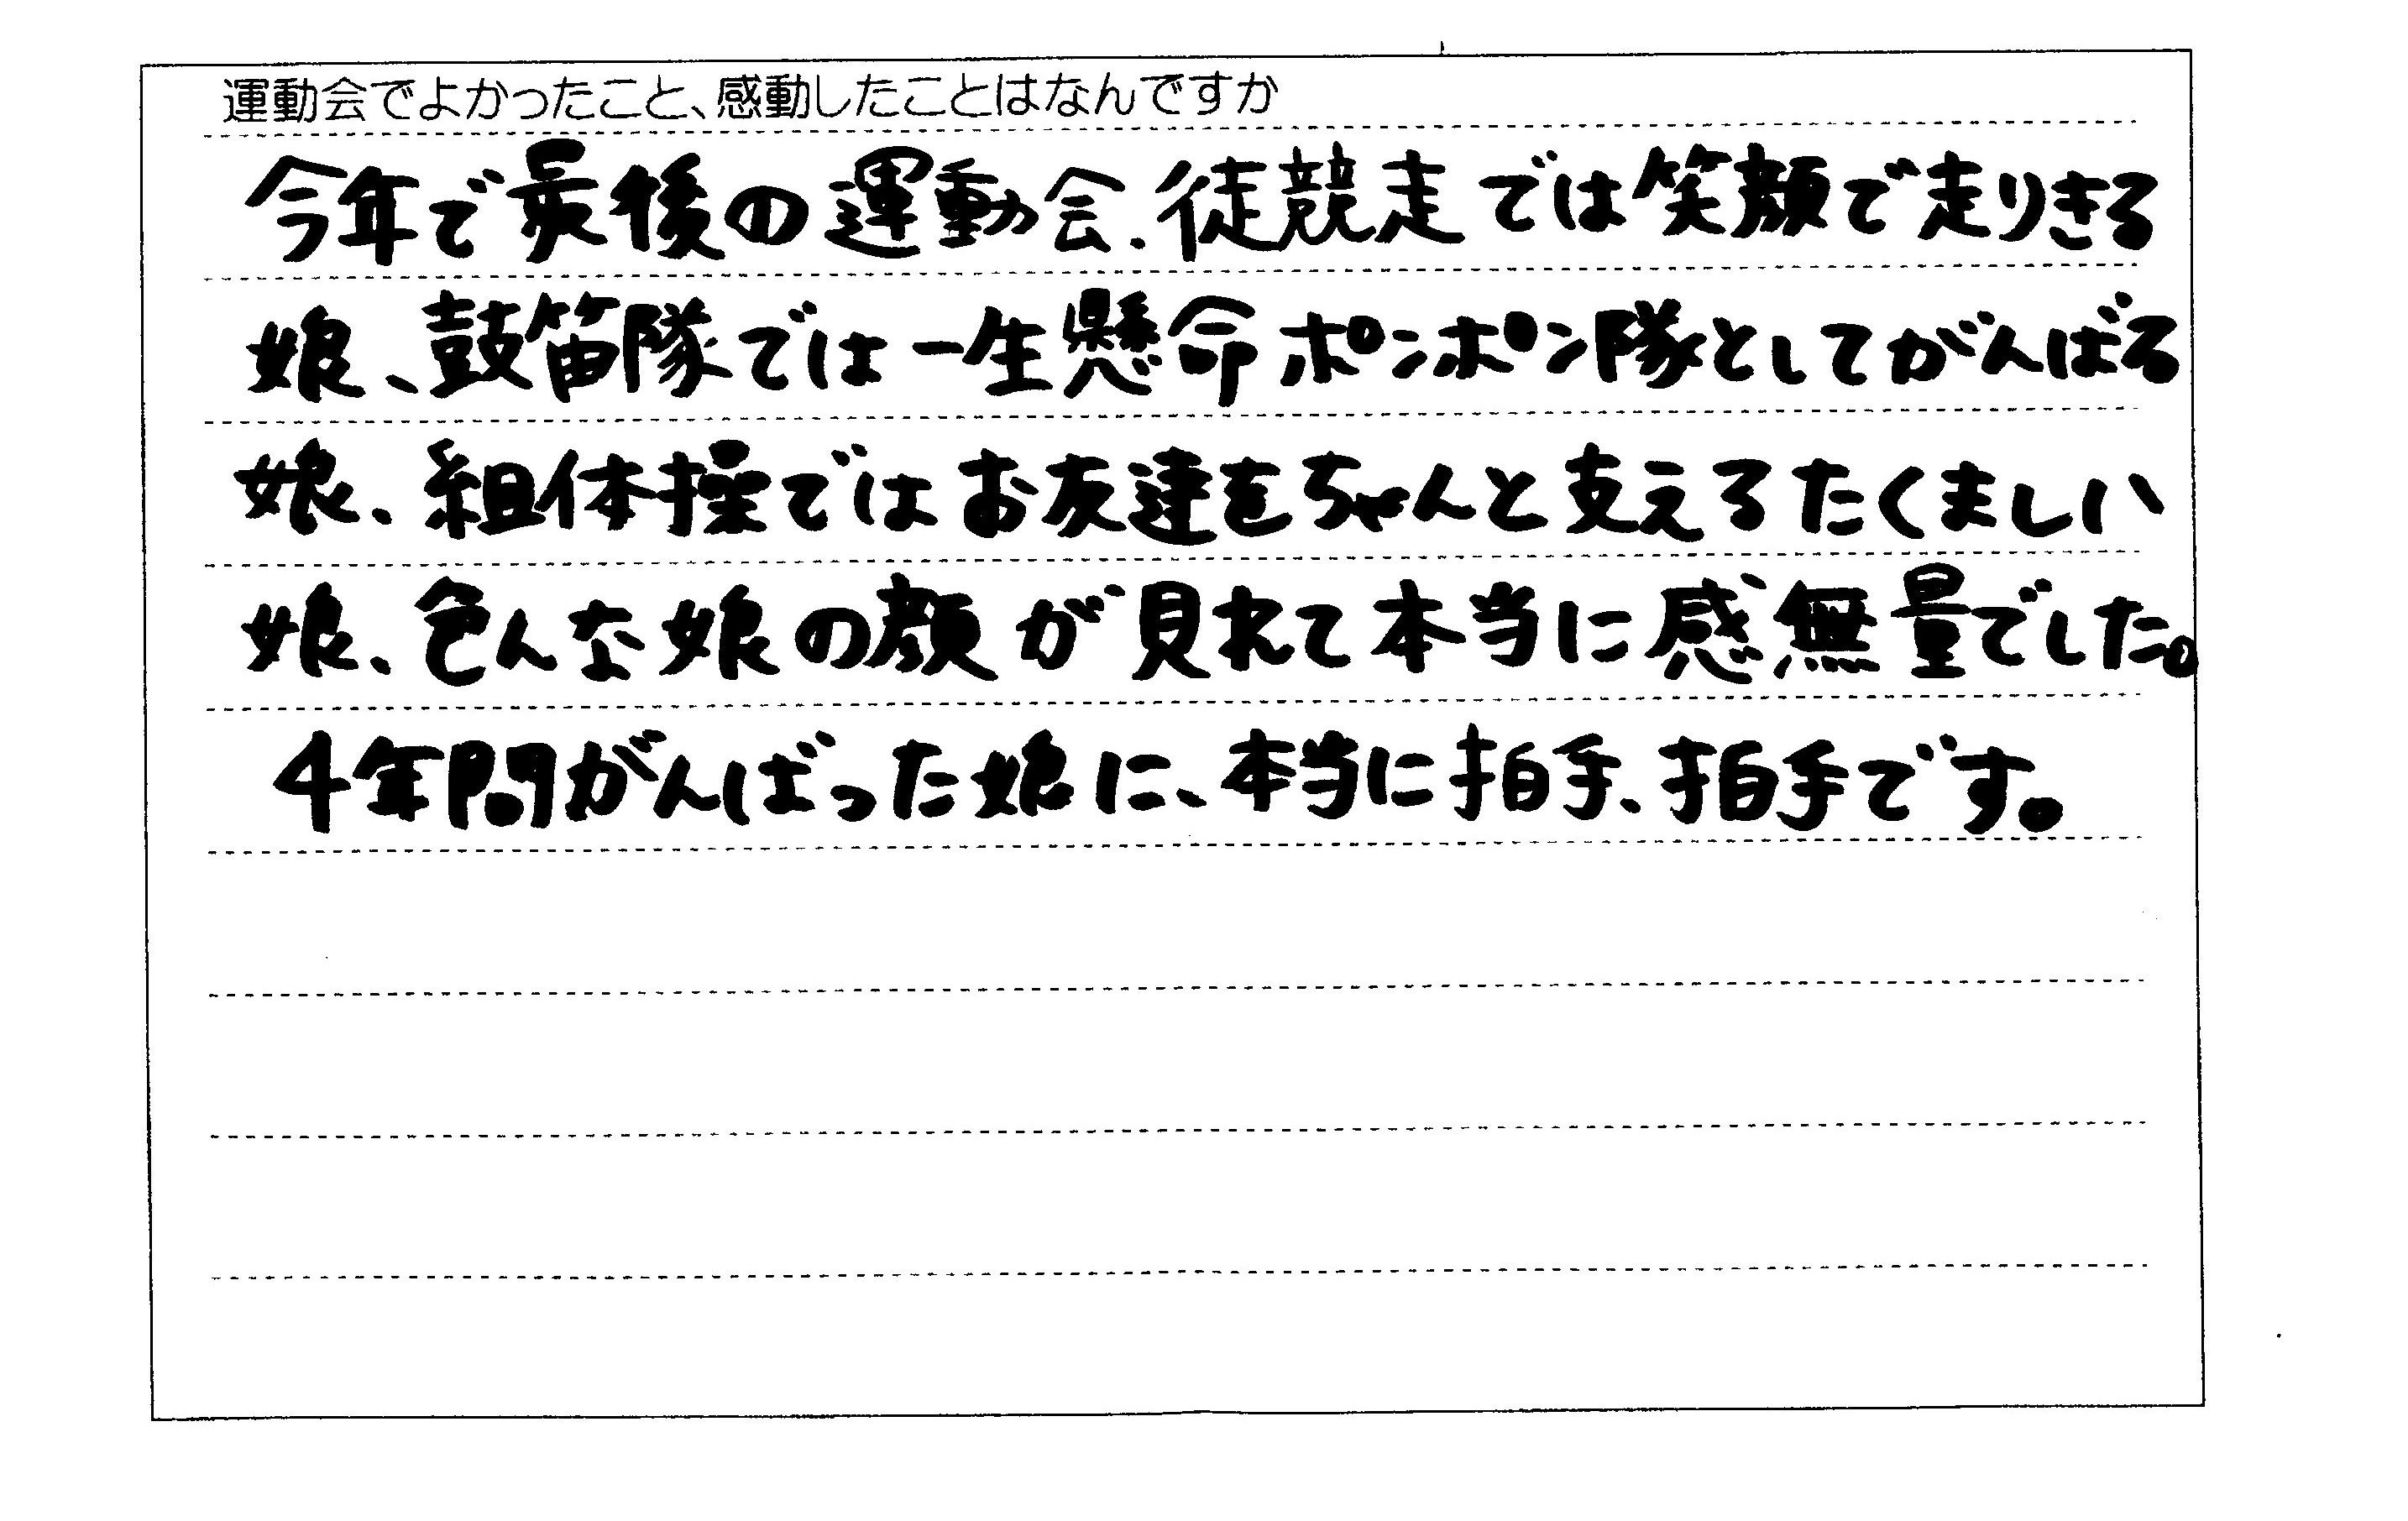 運動会でよかったこと、感動したことはなんですか
今年で最後の運動会、徒競走では笑顔で走りきる
娘、鼓笛隊では一生懸命ポンポン隊としてがんばる
娘、組体操ではお友達をちゃんと支えるたくましい
娘、色んな娘の顔が見れて本当に感無量でした。
4年間がんばった娘に、本当に拍手、拍手です。